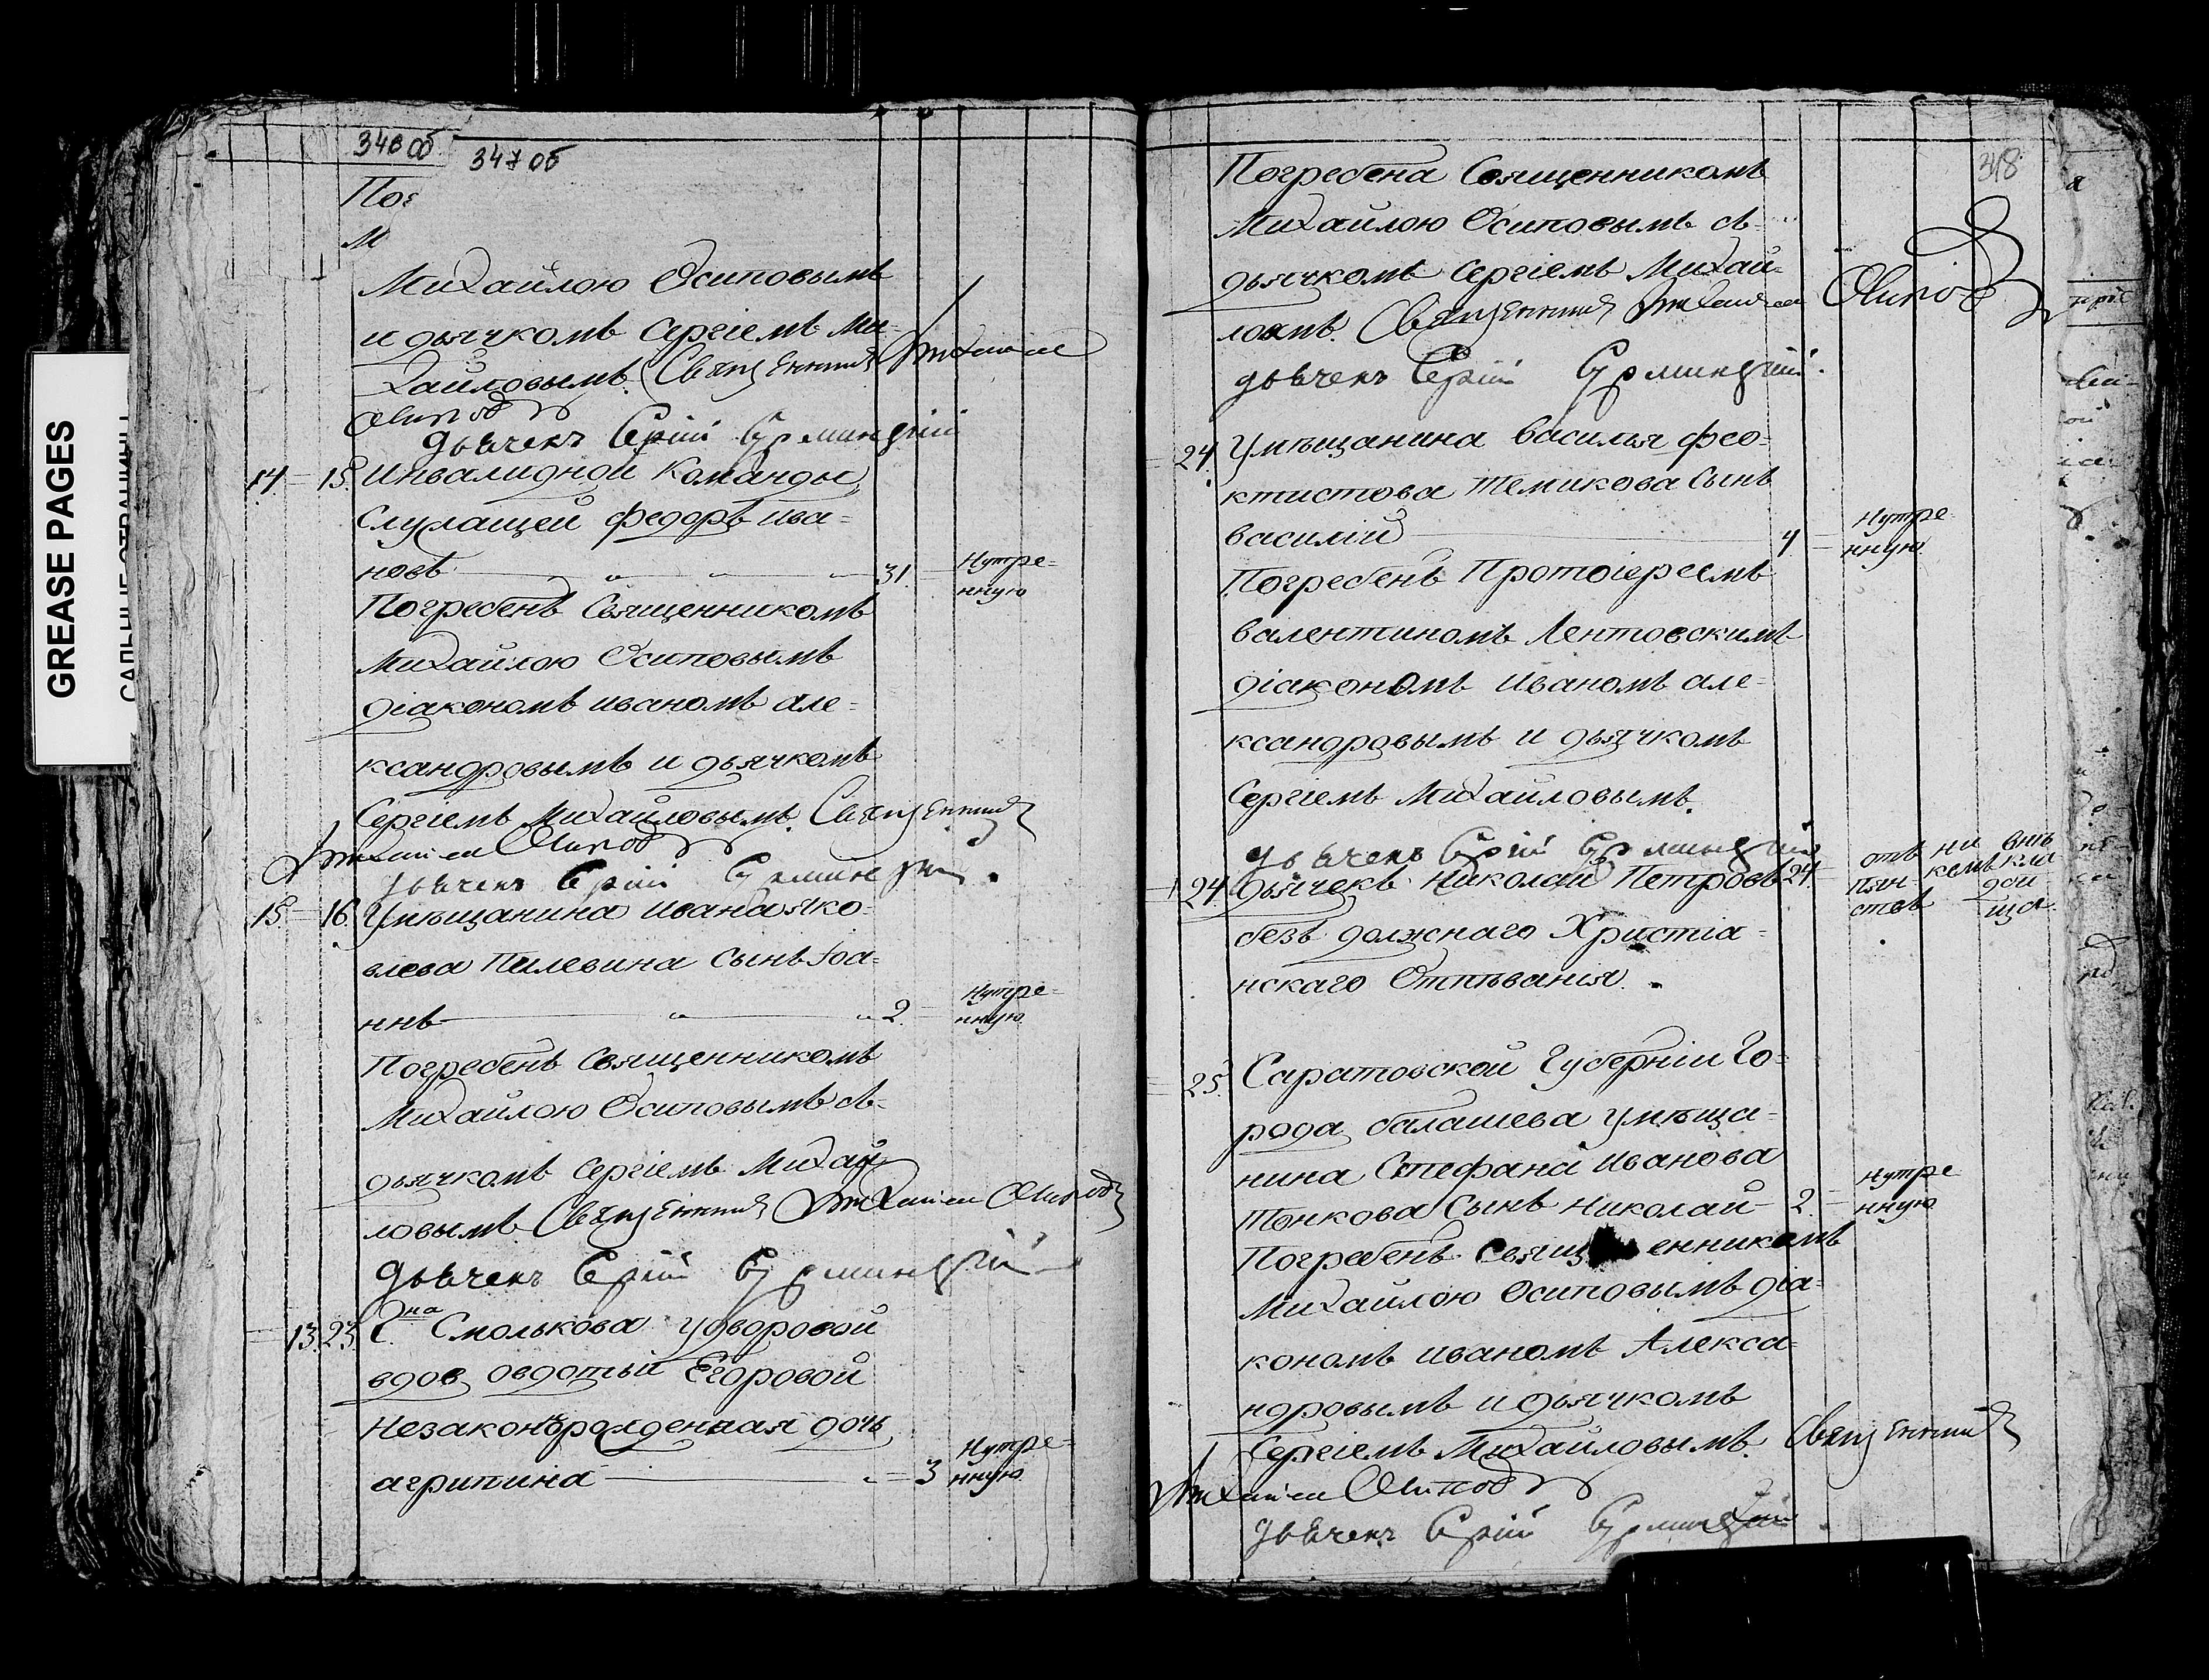 GREASE PAGES
346 об
347 об
Пог
М
Михайлою Осиповымъ
и дьячкомъ Сергіемъ Ми-
хайловымъ. Священникъ Михаилъ
Осиповъ
дьячекъ Сергій
14. = 15. Инвалидной Команды
Служащей Федоръ Ива=
новъ 31. = Нутре=
нную
Погребенъ Священникомъ
Михайлою Осиповымъ
діакономъ Иваномъ Але=
ксандровымъ и дьячкомъ
Сергіемъ Михайловымъ. Священникъ
Михаилъ Осиповъ
дьячекъ Сергій
15. = 16. Умѣщанина Ивана Яко=
влева Пилевина Сынъ Іоа=
ннъ 2. = Нутре=
нную
Погребенъ Священникомъ
Михайлою Осиповымъ съ-
дьячкомъ Сергіемъ Михай
ловымъ Священникъ Михаилъ Осиповъ
дьячекъ Сергій
= 13. 23. С. на Смолькова удворовой
вдов Овдотьи Егоровой
Незаконорожденная дочь
агрипина = 3 Нутре=
нную
348
Погребена Священникомъ
Михайлою Осиповымъ съ-
дьячкомъ Сергіемъ Михай=
ловмъ. Священникъ Михаилъ Осиповъ
дьячекъ Сергій
= 24. Умѣщанина Василья Фео=
ктистова Темикова Сынъ
Василій 4 = Нутре
нную
Погребенъ Протоіереемъ
Валентиномъ Лентовскимъ
діакономъ Иваномъ Але=
ксандровымъ и дьячкомъ
Сергіемъ Михайловымъ.
дьячекъ Сергій
1 24 дьячекъ Николай Петровъ 24. = отъ пьян-ствъ ни кемъ внѣ кладоища
безъ должнаго Христіа=
нскаго Отпѣванія.
= 25. Саратовской Губерніи Го=
рода балашева умѣща=
нина Стефана Иванова
Тонкова Сынъ Николай 2. = Нутре
нную
Погребенъ Священникомъ
Михайлою Осиповымъ діа=
кономъ Иваномъ Алекса=
ндровымъ и дьячкомъ
Сергіемъ Михайловымъ. Священникъ
Михаилъ Осиповъ
дьячекъ Сергій